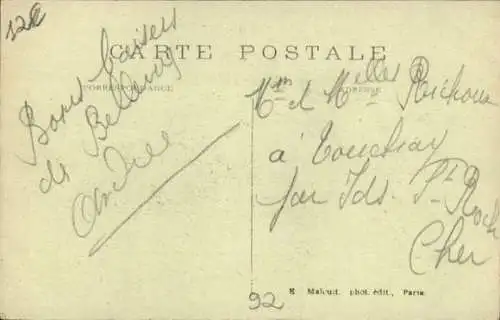 12€
CARTE POSTALE
CORRESPONDANCE
ADRESSE
Bons baisers
de Belleville
André
Mme et Melles Richoux
à Touchay
par Ids St Roch
Cher
E. Malcuit, phot. édit., Paris.
92